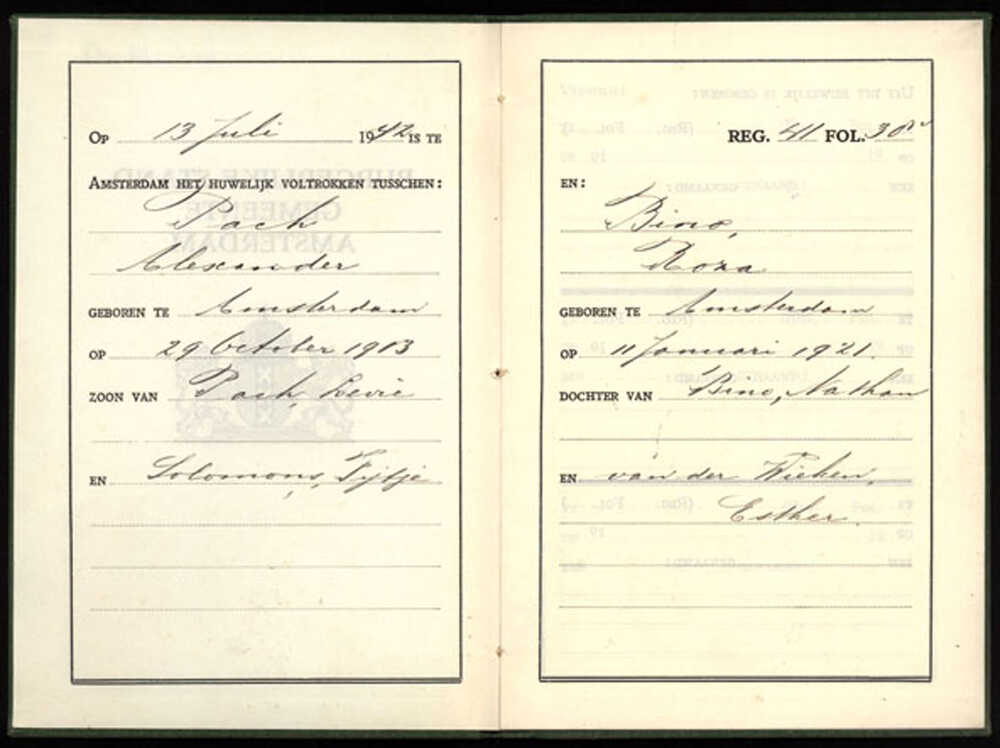 Op 13 Juli 1942 is te
Amsterdam het huwelijk voltrokken tusschen:
Pach
Alexander
geboren te Amsterdam
op 29 October 1913
zoon van Pach, Levie
en Solomons, Fijtje
Reg. 41 Fol. 38v
en:
Bino,
Roza
geboren te Amsterdam
op 11 Januari 1921.
dochter van Bino, Nathan
en van der Wieken,
Esther.